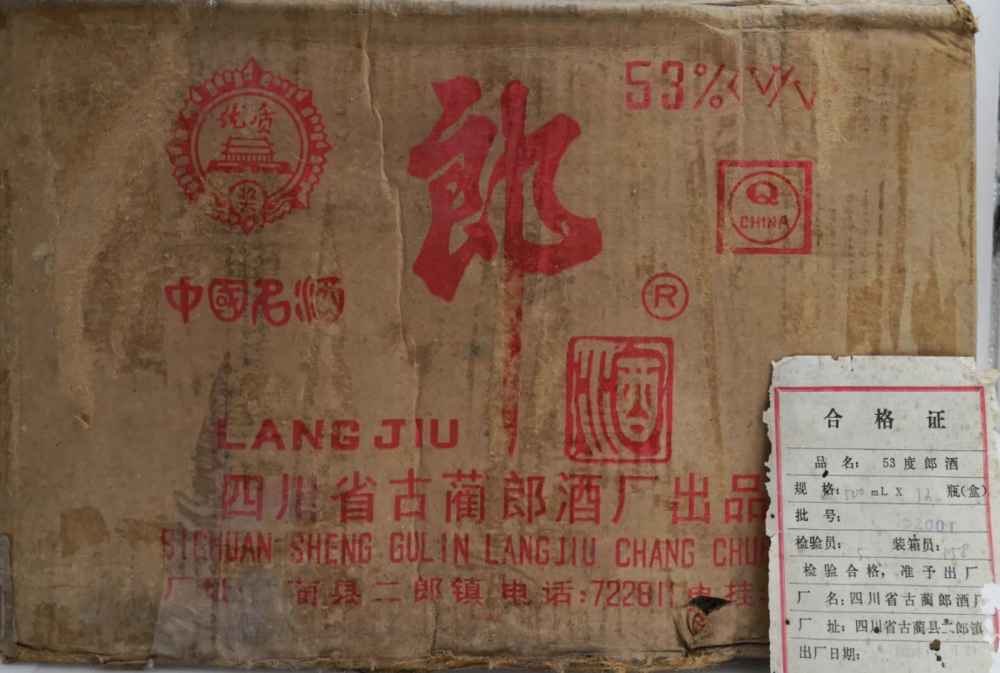 优质
奖
中國名酒
郎
酒
53%
Q
CHINA
®
LANG JIU
四川省古蔺郎酒厂出品
SICHUAN SHENG GULIN LANGJIU CHANG CHU
厂址 蔺县二郎镇 电话:722811 电挂
合格证
品名: 53度郎酒
规格: mL X 12 瓶(盒)
批号:
检验员: 装箱员:
检验合格,准予出厂
厂名:四川省古蔺郎酒厂
厂址:四川省古蔺县二郎镇
出厂日期: